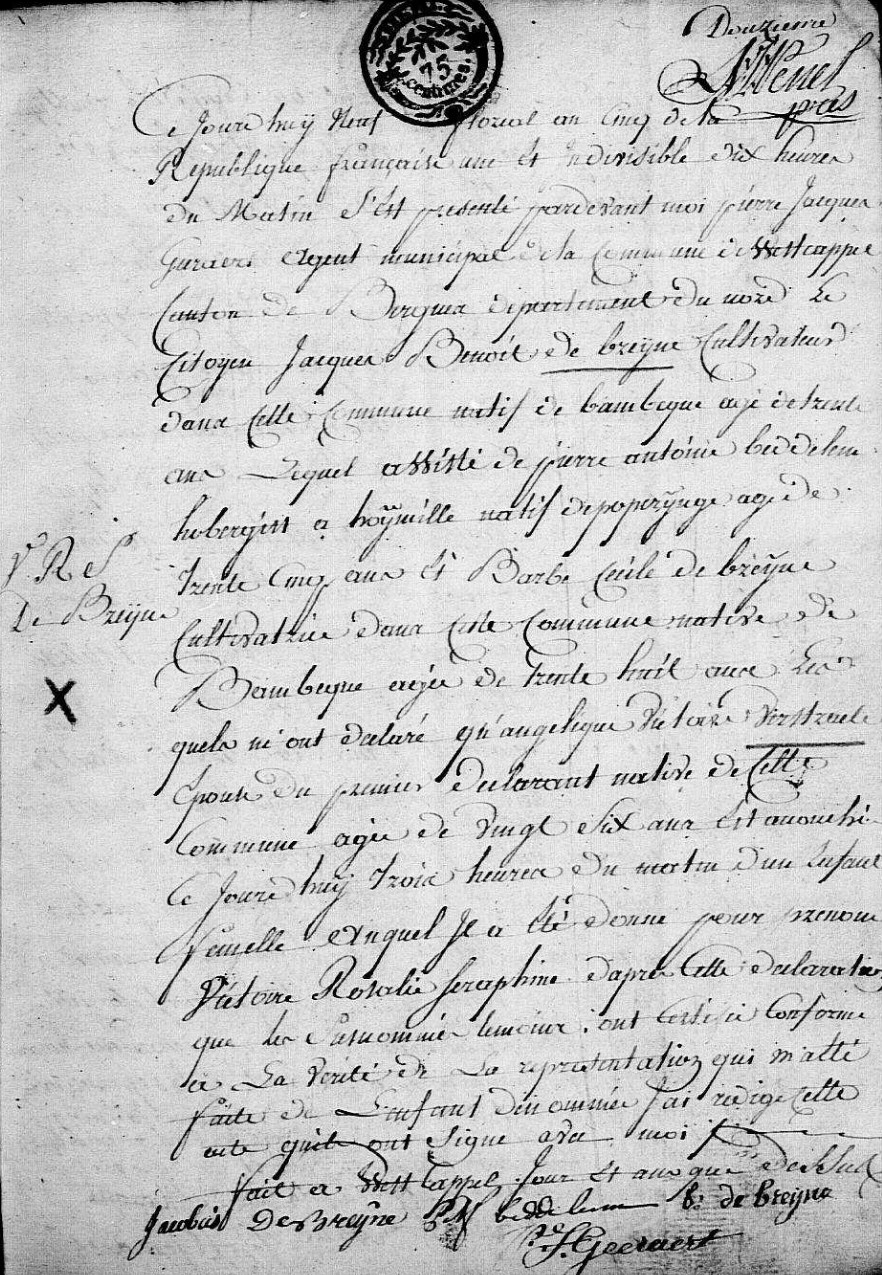 Douzieme
75
centimes.
Ce Jourd huij Neuf floreal an Cinq de la
Republique française une et Indivisible dix heures
du Matin s'Est presenté pardevant moi pierre Jacques
Geraert Agent municipal de la Commune de Westcappel
Canton de Bergues departement du nord Le
Citoyen Jacques Benoit de breijne Cultivateur
dans Cette Commune natif de bambeque agé de trente
ans Lequel assisté de pierre antoine beddelem
a hoijmille natif de poperijnge agé de
trente Cinq ans et Barbe Cecile de breijne
V. R. S.
De Breijne
Cultivatrice dans Cette Commune native de
Bambeque agée de trente huit ans Les
X
quels m'ont declaré qu'angelique Victoire Verstraete
Epouse du premier declarant native de Cette
Commune agée de vingt Six ans Est accouchée
Ce Jourd huij trois heures du matin d'un Enfant
femelle Auquel Il a Eté donné pour prenom
Victoire Rosalie Seraphine d'apres Cette declaration
que les Susnommés temoins ont Certifié Conforme
a La Verité et La representation qui m'a Eté
faite de L'enfant denommée J'ai redigé Cette
acte qu'ils ont Signe avec moi
fait a West Cappel Jour et ans que dessus
Jacobus DeBreijne PA beddelem b. de breijne
P. J. Geeraert